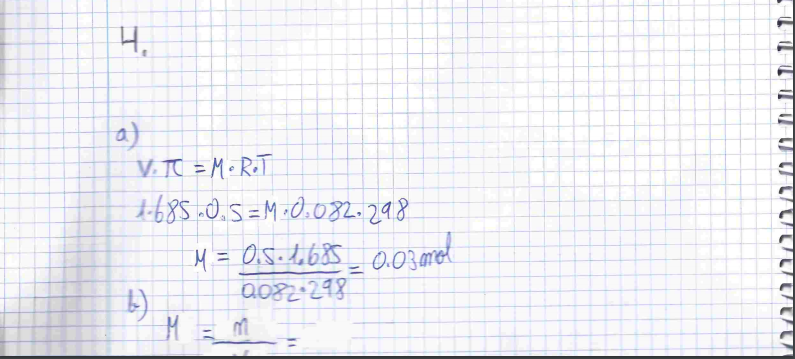 4.
a)
V.π = M.R.T
1.685.0.5 = M.0.082.298
M = 0.5.1.685 / 0.082.298 = 0.03 mol
b)
M = m / =